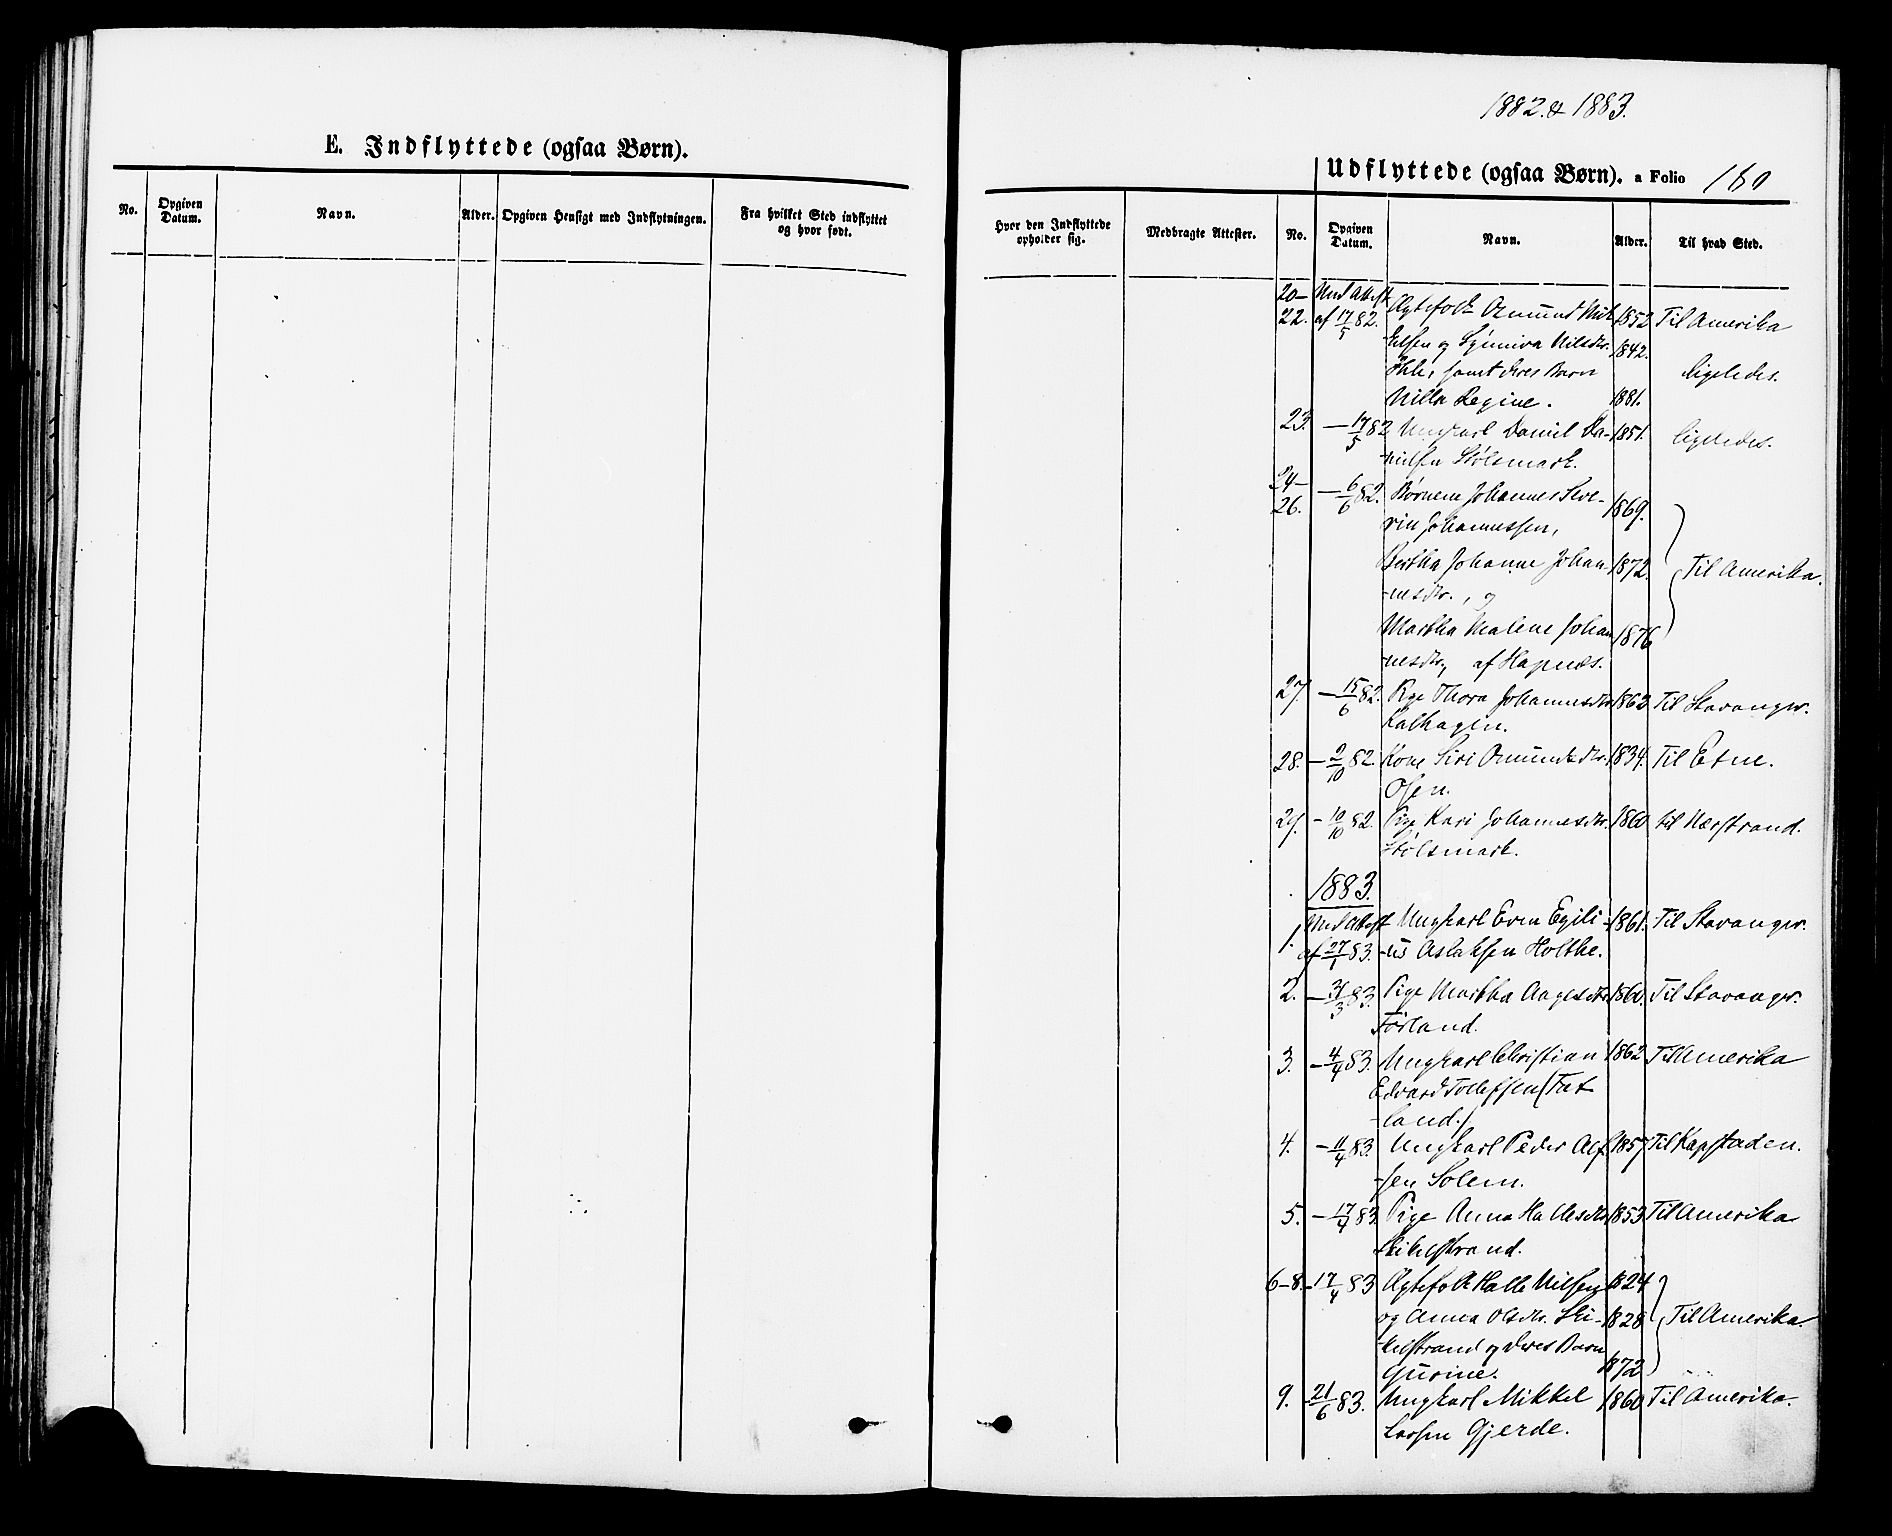 1882. & 1883.
E. Indflyttede (ogsaa Børn).
Udflyttede (ogsaa Børn). a Folio 160
No. Opgiven Datum. Navn. Alder. Opgiven Hensigt med Indflytningen. Fra hvilket Sted indflyttet og hvor født.
Hvor den Indflyttede opholder sig. Medbragte Attester. No. Opgiven Datum. Navn. Alder. Til hvad Sted.
20- Med Attest Ægtefolk Omund Mik- 1852 Til Amerika
22. af 17/5 82. kelsen og Synniva Nilsdtr. 1842.
samt deres Barn ligeledes.
Nilla Regine. 1881.
23. - 17/5 82 Ungkarl Daniel Da- 1851. ligeledes.
nielsen Stølsmark.
24- - 6/6 82. Børnene Johannes Seve-
26. rin Johannessen, 1869.
Bertha Johanne Johan- 1872. Til Amerika.
nesdtr., og
Martha Malene Johan 1876
nesdtr, af Hapnæs.
27. - 15/6 82. Pige Thora Johannesdtr 1862 Til Stavanger.
Kalhagen.
28. - 2/10 82. Kone Siri Omundsdtr. 1834. Til Etne.
Osen.
29. - 10/10 82. Pige Kari Johannesdtr. 1860 til Nærstrand.
Stølsmark.
1883.
1. Med Attest Ungkarl Even Egili- 1861. Til Stavanger.
af 27/1 83. us Aslaksen Holthe.
2. - 31/3 83. Pige Martha Aagesdtr 1860. Til Stavanger.
Førland.
3. - 4/4 83. Ungkarl Christian 1862 Til Amerika
Edvard Tollefsen (Tat
land.)
4. - 11/4 83. Ungkarl Peder Alf- 1857 Til Kapstaden.
sen Solem.
5. - 17/4 83. Pige Anna Hallesdtr 1853 Til Amerika
6-8. - 17/4 83 Ægtefolk Halle Nilsen 1824
og Anna Olsdtr. Ski- 1828 Til Amerika.
kelstrand og deres Barn
Gurine. 1872
9. 21/6 83. Ungkarl Mikkel 1860 Til Amerika.
Larsen Gjerde.